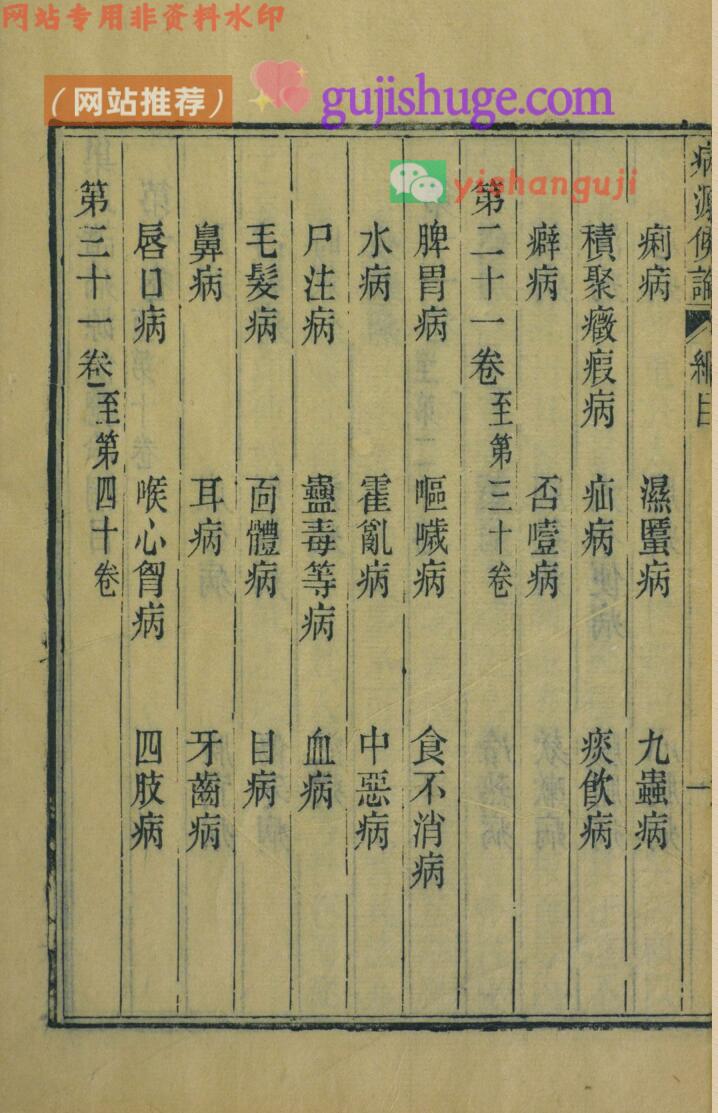 网站专用非资料水印
（网站推荐）
gujishuge.com
yishanguji
病源候論 綱目 一
痢病 濕䘌病 九蟲病
積聚癥瘕病 疝病 痰飲病
癖病 否噎病
第二十一卷至第三十卷
脾胃病 嘔噦病 食不消病
水病 霍亂病 中惡病
尸注病 蠱毒等病 血病
毛髮病 面體病 目病
鼻病 耳病 牙齒病
唇口病 喉心胷病 四肢病
第三十一卷至第四十卷